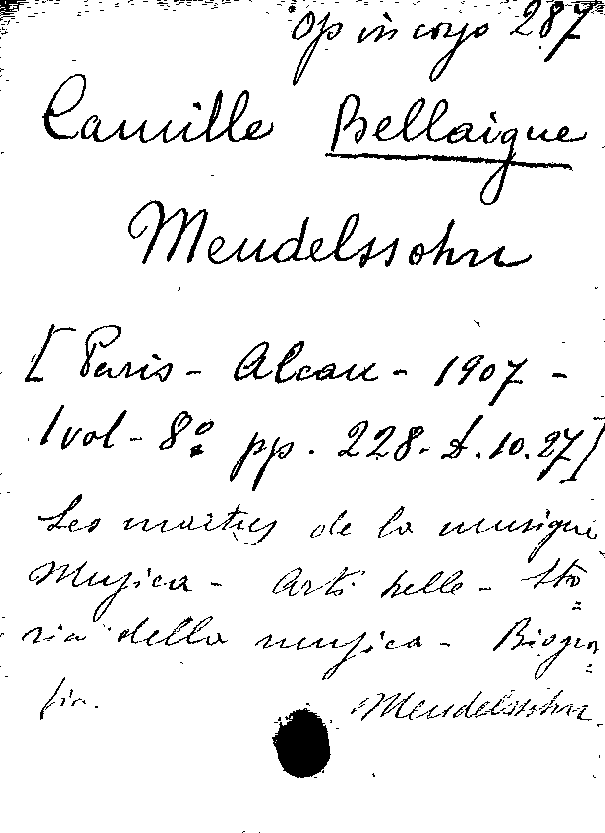 Op in corso 287
Camille Bellaigue
Mendelssohn
[Paris - Alcan - 1907 -
1 vol - 8º pp. 228. L. 10.27]
Les maitres de la musique
Musica - Arti belle - Sto=
ria della musica - Biogra=
fia. Mendelssohn.